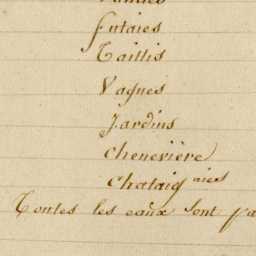 futaies
Taillis
Vagues
Jardins
chenevière
chataig aies
Toutes les eaux sont